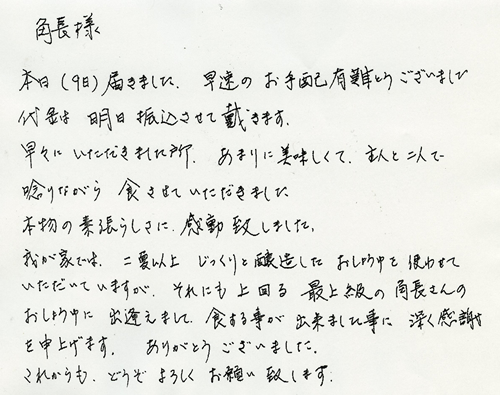 角長様
本日（9日）届きました。早速のお手配有難とうございました
代金は明日振込させて戴きます。
早々にいただきました所、あまりに美味しくて、主人と二人で
唸りながら食させていただきました
本物の素張らしさに感動致しました。
我が家では、二夏以上じっくりと醸造したおしょう油を使わせて
いただいていますが、それにも上回る最上級の角長さんの
おしょう油に出逢えまして、食する事が出来ました事に深く感謝
を申上げます。ありがとうございました。
これからも、どうぞよろしくお願い致します。